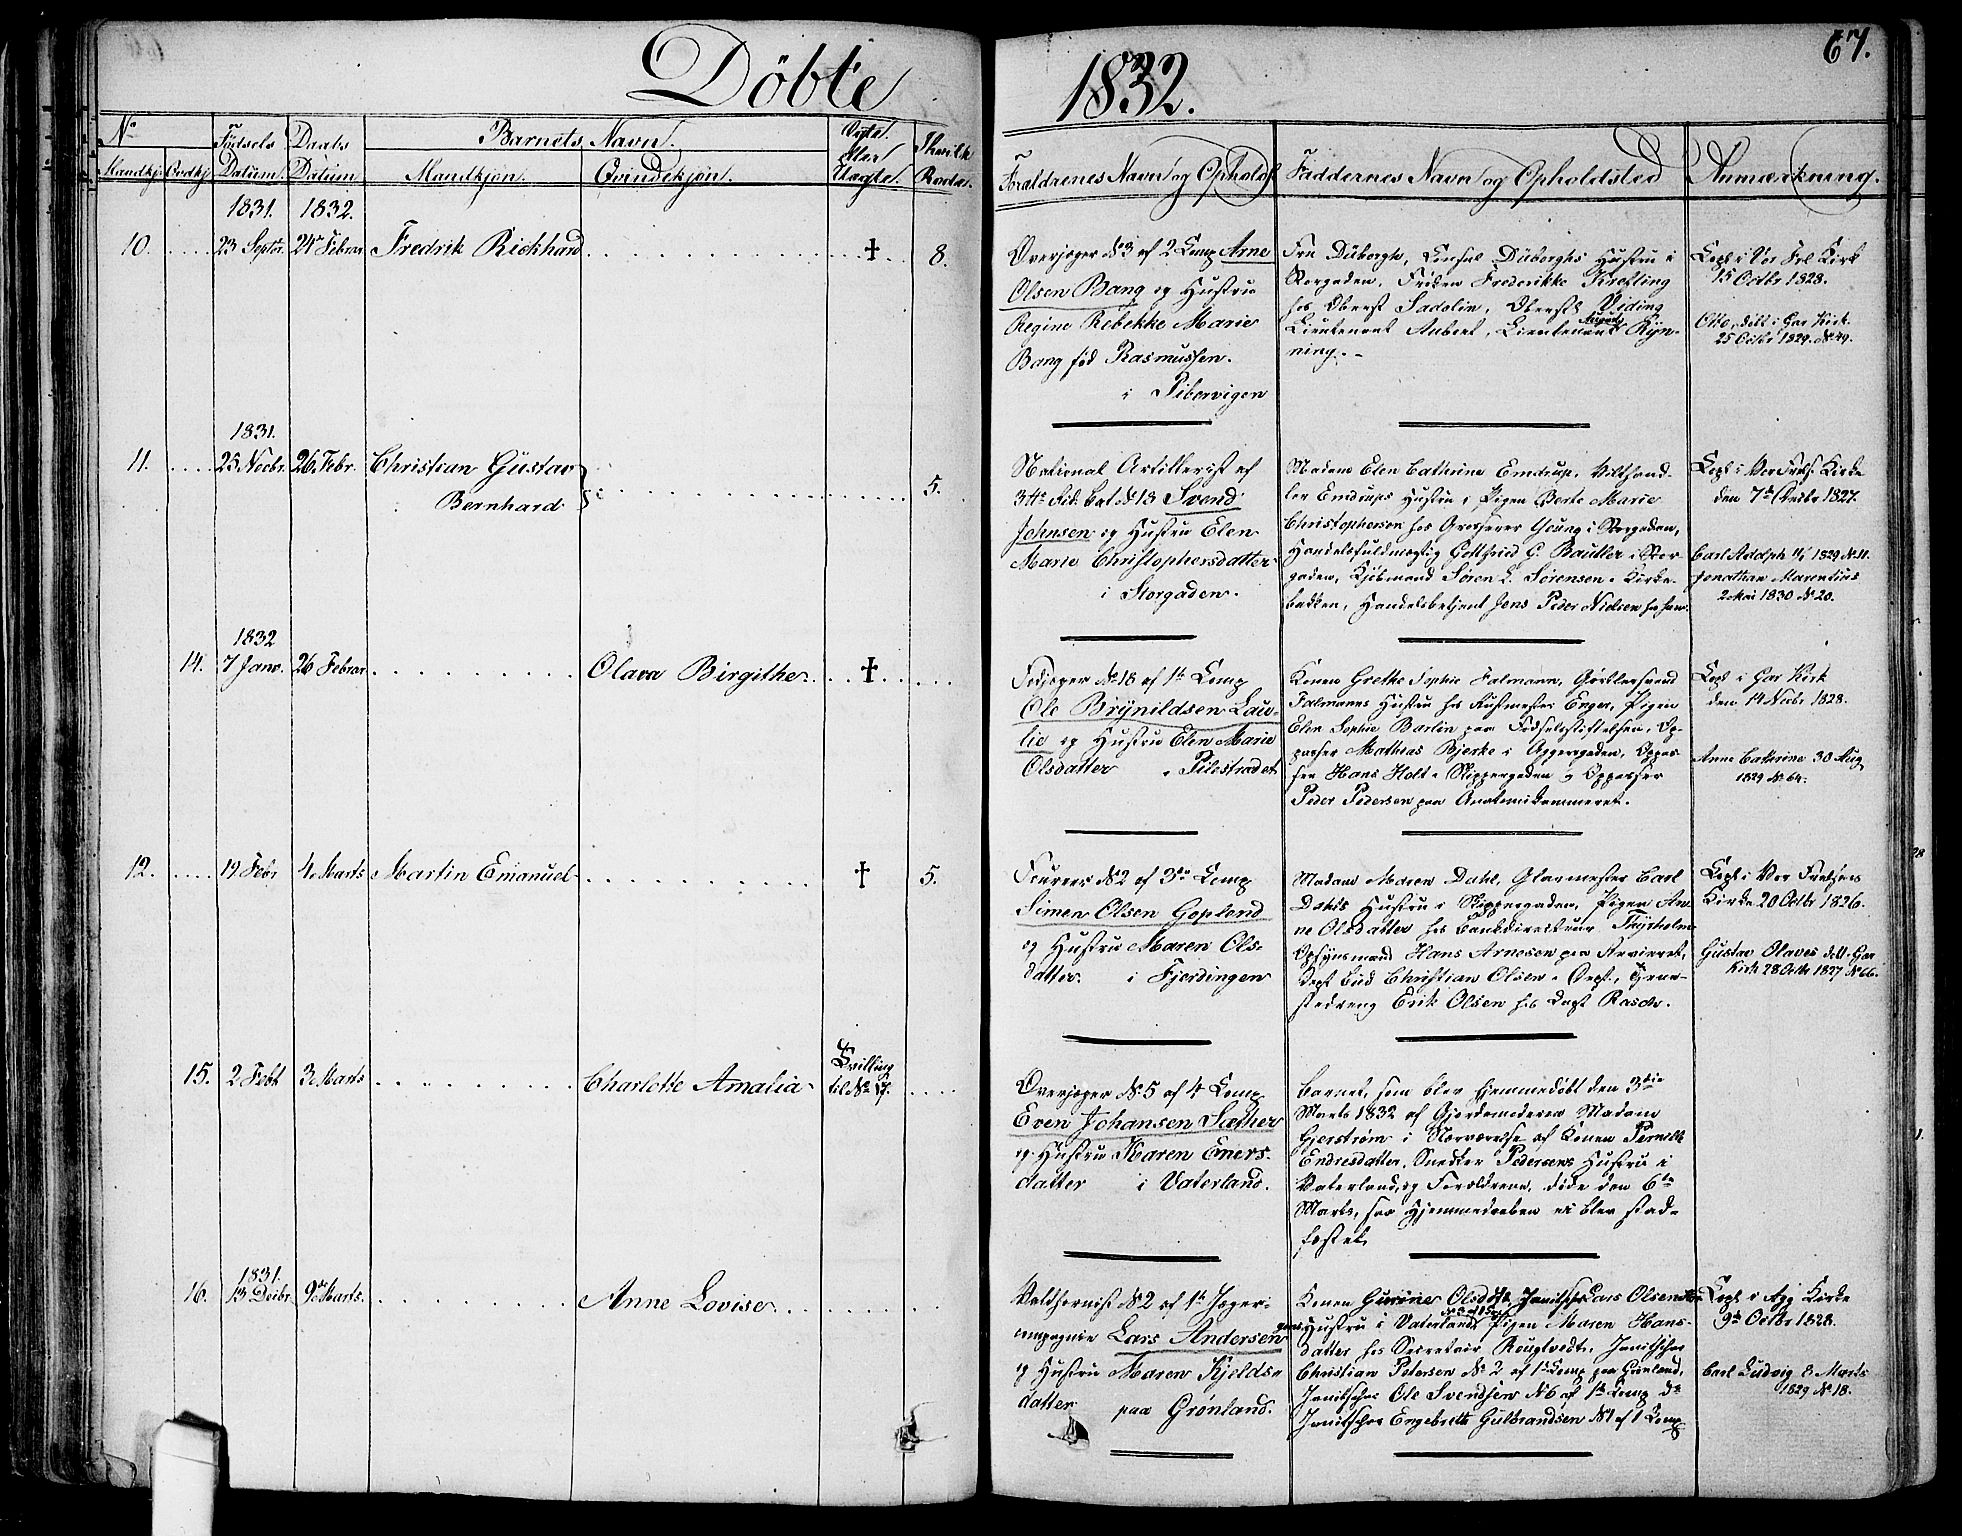 Döbte
1832.
67.
No
Mandkj. Qvdkj.
Fødsels Datum.
Daabs Datum
Barnets Navn.
Mandkjøn. Qvindekjøn.
Ægte eller Uægte.
Foraldrenes Navn og Opholds
Faddernes Navn og Opholdsted
Anmærkning.
1831. 1832.
10. 23 Septbr. 24 Februar Fredrik Rickhard † 8.
Overjæger No 3 af 2 Comp Arne
Olsen Bang og Hustru
Regine Rebekke Marie
Bang fød Rasmussen.
i Pibervigen
Fru Düborgh, Consul Düborghs Hustru i
Storgaden, Frøken Frederikke Krefting
hos Oberst Sadolin, Oberst Viding
Lieutenant Aubert, Lieutenant August Ryn-
ning.
Copl i Vor Frl Kirk
15 Octbr 1828.
Otto, døbt i Gar Kirk.
25 Octbr 1829. No 49.
1831.
11. 25 Novbr. 26 Febr. Christian Gustav
Bernhard 5.
National Artillerist af
Svend
Johnsen og Hustru Elen
Marie Christophersdatter
i Storgaden.
Madam Elen Cathrine Emdrup,
ler Emdrups Hustru, Pigen Berte Marie
Christophersen hos Grosserer Young i Storgaden,
Handelsfuldmægtig Gottfried C. Bautler i Stor-
gaden, Kjøbmand Søren L. Sørensen i Kirke-
bakken, Handelsbetjent Jens Peder Nielsen
Copl i Vor Frels. Kirke
den 7de Decbr 1827.
Carl Adolph 11/1 1829 No 11.
Jonathan Marentius
2 Mai 1830 No 20.
1832
14. 7 Janr. 26 Februar Olava Birgithe †
No 18 af 1ste Comp
Ole Brynildsen Lau-
lie og Hustru Elen Marie
Olsdatter i Pilestrædet
Konen Grethe Sophie Falmann, Gørtlersvend
Falmanns Hustru hos Rustmester Enger, Pigen
Elen Sophie Barlin paa Fødselsstiftelsen, Op-
passer Mathias Bjerke i Aggersgaden, Oppas-
ser Hans Holt i Skippergaden og Oppasser
Peder Pedersen paa Anatomikammeret.
Copl i Gar Kirk
den 14 Novbr 1828.
Anne Cathrine 30 Aug
1829 No 64.
12. 19 Febr 4. Marts Martin Emanuel † 5.
Fourer No 2 af 3die Comp
Simen Olsen Gopland
og Hustru Maren Ols-
datter. i Fjerdingen
Madam Maren Dahl, Glasmester Carl
Dahls Hustru i Skippergaden, Pigen An-
ne Olsdatter hos Bankdirecteur Thyrholm
Opsynsmand Hans Arnesen paa Revieret,
Dept Bud Christian Olsen i Tjene-
stedreng Erik Olsen hos Capt Rasch.
Copl i Vor Frelsers
Kirke 20 Octbr 1826.
Gustav Olaves døbt i Gar
Kirk 28 Octbr 1827 No 66.
15. 2 Febr 3 Marts Charlotte Amalia Tvilling
til No 17.
Overjæger No 5 af 4 Comp
Even Johansen Sæther
og Hustru Karen Eners-
datter i Vaterland.
Barnet, som blev hjemmedøbt den 3die
Marts 1832 af Gjordemoderen Madam
Gjerstrøm i Nærværelse af Konen Pernille
Endresdatter, Snedker Pedersens Hustru i
Vaterland, og Forældrene, døde den 6te
Marts, før Hjemmedaaben ei blev stad-
fæstet.
1831.
16. 13 Decbr. 9de Marts. Anne Lovise
Valthornist No 2 af 1ste Jæger-
compagnie Lars Andersen
og Hustru Maren Kjelds-
datter paa Grønland.
Konen Gurine Olsdatter, Janitschar Lars Olsens
Hustru i Vaterland, Pigen Maren Hans-
datter hos Secretair Rougtvedt, Janitschar
Christian Petersen No 2 af 1ste Comp paa Grønland,
Janitschar Ole Svendsen No 6 af 1ste Comp do
Janitschar Engebreth Gulbrandsen No 1 af 1 Comp
Copl i Agg Kirke
9de Octbr 1828.
Carl Ludvig 8 Marts
1829 No 18.